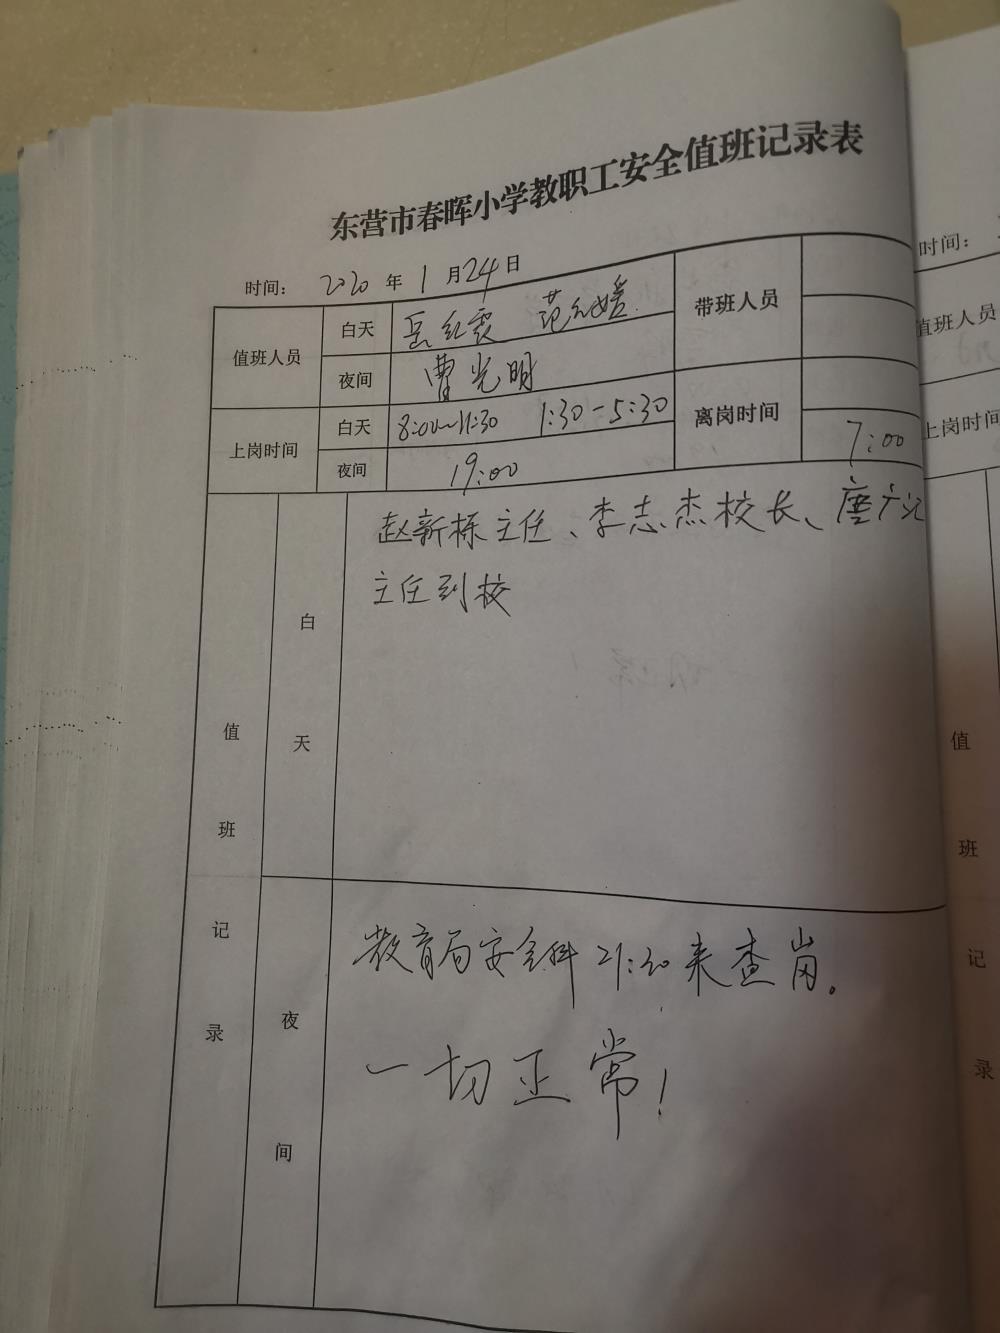 东营市春晖小学教职工安全值班记录表
时间： 2020 年 1 月 24 日
值班人员 白天 岳红霞 范 媛 带班人员
夜间 曹光明
上岗时间 白天 8:00~11:30 1:30-5:30 离岗时间
夜间 19:00 7:00
值班记录
白天
赵新栋主任、李志杰校长、唐广
主任到校
夜间
教育局安全科21:20来查岗。
一切正常！
时间：
值班人员
上岗时间
值班记录